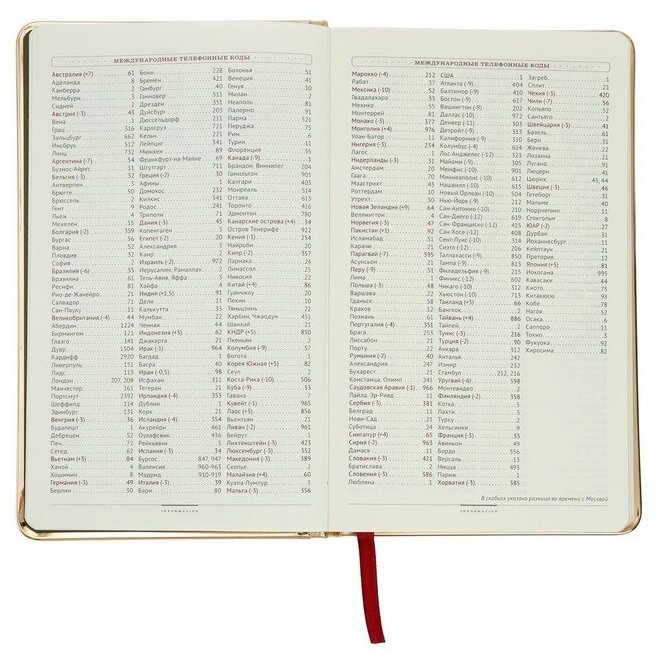 МЕЖДУНАРОДНЫЕ ТЕЛЕФОННЫЕ КОДЫ
Австралия (+7) 61
Аделаида 8
Канберра 2
Мельбурн 3
Сидней 2
Австрия (-3) 43
Вена 1
Грац 316
Зальцбург 662
Инсбрук 512
Линц 732
Аргентина (-7) 54
Буэнос-Айрес 11
Бельгия (-3) 32
Антверпен 3
Брюгге 50
Брюссель 2
Гент 9
Льеж 4
Мехелен 15
Болгария (-2) 359
Бургас 56
Варна 52
Пловдив 32
София 2
Бразилия (-6) 55
Бразилиа 61
Ресифи 81
Рио-де-Жанейро 21
Салвадор 71
Сан-Паулу 11
Великобритания (-4) 44
Абердин 1224
Бирмингем 121
Глазго 141
Дувр 1304
Кардифф 2920
Ливерпуль 151
Лидс 113
Лондон 207, 208
Манчестер 161
Портсмут 2392
Шеффилд 114
Эдинбург 131
Венгрия (-3) 36
Будапешт 1
Дебрецен 52
Печ 72
Сегед 62
Вьетнам (+4) 84
Ханой 4
Хошимин 8
Германия (-3) 49
Берлин 30
Бонн 228
Бремен 421
Гамбург 40
Ганновер 511
Дрезден 351
Дуйсбург 203
Дюссельдорф 211
Карлсруэ 721
Кельн 221
Лейпциг 341
Мюнхен 89
Франкфурт-на-Майне 69
Штутгарт 711
Греция (-2) 30
Афины 1
Домокос 232
Килкис 341
Родос 241
Триполи 71
Дания (-3) 45
Копенгаген 3
Египет (-2) 20
Александрия 3
Каир 2
Израиль (-2) 972
Иерусалим, Рамаллах 2
Тель-Авив, Яффа 3
Хайфа 4
Индия (+1,5) 91
Дели 11
Калькутта 33
Мумбаи 22
Ченнаи 44
Индонезия (+3) 62
Джакарта 21
Ирак (-1) 964
Багдад 1
Басра 40
Иран (-0,5) 98
Исфахан 311
Тегеран 21
Ирландия (-4) 353
Дублин 1
Корк 21
Исландия (-4) 354
Акурейри 461
Оулафсвик 436
Рейкьявик 5
Испания (-3) 34
Бургос 847, 947
Валенсия 960-963
Мадрид 910-919
Италия (-3) 39
Бари 80
Болонья 51
Венеция 41
Генуя 10
Милан 2
Неаполь 81
Палермо 91
Парма 521
Перуджа 75
Рим 6
Турин 11
Флоренция 55
Канада (-9) 1
Брандон, Виннипег 204
Гамильтон 905
Калгари 403
Монреаль 514
Оттава 613
Торонто 416
Эдмонтон 780
Канарские острова (-4) 34
Остров Тенерифе 922
Кения (-1) 254
Найроби 20
Кипр (-2) 357
Ларнака 24
Лимассол 25
Никосия 22
Китай (+4) 86
Гуанчжоу 20
Пекин 10
Тяньцзинь 22
Харбин, Чжаодун 451
Шанхай 21
КНДР (+5) 850
Пхеньян 2
Колумбия (-9) 57
Богота 1
Корея Южная (+5) 82
Сеул 2
Коста-Рика (-10) 506
Куба (-9) 53
Гавана 7
Кувейт (-1) 965
Лаос (+3) 856
Вьентьян 21
Ливан (-2) 961
Бейрут 1
Лихтенштейн (-3) 423
Люксембург (-3) 352
Македония (-3) 389
Скопье 2
Малайзия (+4) 60
Куала-Лумпур 3
Мальта (-3) 356
INFORMATION
МЕЖДУНАРОДНЫЕ ТЕЛЕФОННЫЕ КОДЫ
Марокко (-4) 212
Рабат 37
Мексика (-10) 52
Гвадалахара 33
Мехико 55
Монтеррей 81
Монако (-3) 377
Монголия (+4) 976
Улан-Батор 11
Нигерия (-3) 234
Лагос 1
Нидерланды (-3) 31
Амстердам 20
Гаага 70
Маастрихт 43
Роттердам 10
Утрехт 30
Новая Зеландия (+9) 64
Веллингтон 4
Норвегия (-3) 47
Пакистан (+1) 92
Исламабад 51
Карачи 21
Парагвай (-7) 595
Асунсьон 21
Перу (-9) 51
Лима 1
Польша (-3) 48
Варшава 22
Гданьск 58
Краков 12
Познань 61
Португалия (-4) 351
Брага 253
Лиссабон 21
Порту 22
Румыния (-2) 40
Александрия 247
Бухарест 21
Констанца, Олимп 241
Саудовская Аравия (-1) 966
Лайла, Эр-Рияд 11
Сербия (-3) 381
Белград 11
Нови-Сад 21
Суботица 24
Сингапур (+4) 65
Сирия (-2) 963
Дамаск 11
Словакия (-3) 421
Братислава 2
Словения (-3) 386
Любляна 1
США 1
Атланта (-9) 404
Балтимор (-9) 410
Бостон (-9) 617
Вашингтон (-9) 202
Даллас (-10) 972
Денвер (-11) 303
Детройт (-9) 313
Калифорния (-9) 310
Колумбус (-9) 614
Лос-Анджелес (-12) 323
Майами (-9) 305
Мемфис (-10) 901
Миннеаполис (-10) 612
Нашвилл (-10) 615
Новый Орлеан (-10) 504
Нью-Йорк (-9) 212
Сан-Антонио (-10) 210
Сан-Диего (-12) 619
Сан-Франциско (-12) 415
Сан-Хосе (-12) 408
Сент-Луис (-10) 314
Сиэтл (-12) 206
Таллахасси (-9) 850
Тампа (-9) 813
Филадельфия (-9) 215
Финикс (-12) 602
Чикаго (-10) 312
Хьюстон (-10) 713
Таиланд (+3) 66
Бангкок 2
Тайвань (+4) 886
Тайпей 2
Тунис (-3) 216
Турция (-2) 90
Анкара 312
Анталья 242
Измир 232
Стамбул 212, 216
Уругвай (-6) 598
Монтевидео 2
Финляндия (-2) 358
Котка 5
Лахти 3
Турку 2
Хельсинки 9
Франция (-3) 33
Авиньон 49
Бордо 556
Версаль 13
Ницца 493
Париж 1
Хорватия (-3) 385
Загреб 1
Сплит 21
Чехия (-3) 420
Чили (-7) 56
Копьяпо 52
Сантьяго 2
Швейцария (-3) 41
Базель 61
Берн 31
Женева 22
Лозанна 21
Лугано 91
Люцерн 41
Цюрих 43, 44
Швеция (-3) 46
Гетеборг 31
Мальме 40
Норрчепинг 11
Стокгольм 8
ЮАР (-2) 27
Дурбан 31
Йоханнесбург 11
Кейптаун 21
Претория 12
Япония (+5) 81
Иокогама 45
Кавасаки 44
Киото 75
Китакюсю 93
Кобе 78
Нагоя 52
Осака 6
Саппоро 11
Токио 3
Фукуока 92
Хиросима 82
В скобках указана разница во времени с Москвой
INFORMATION